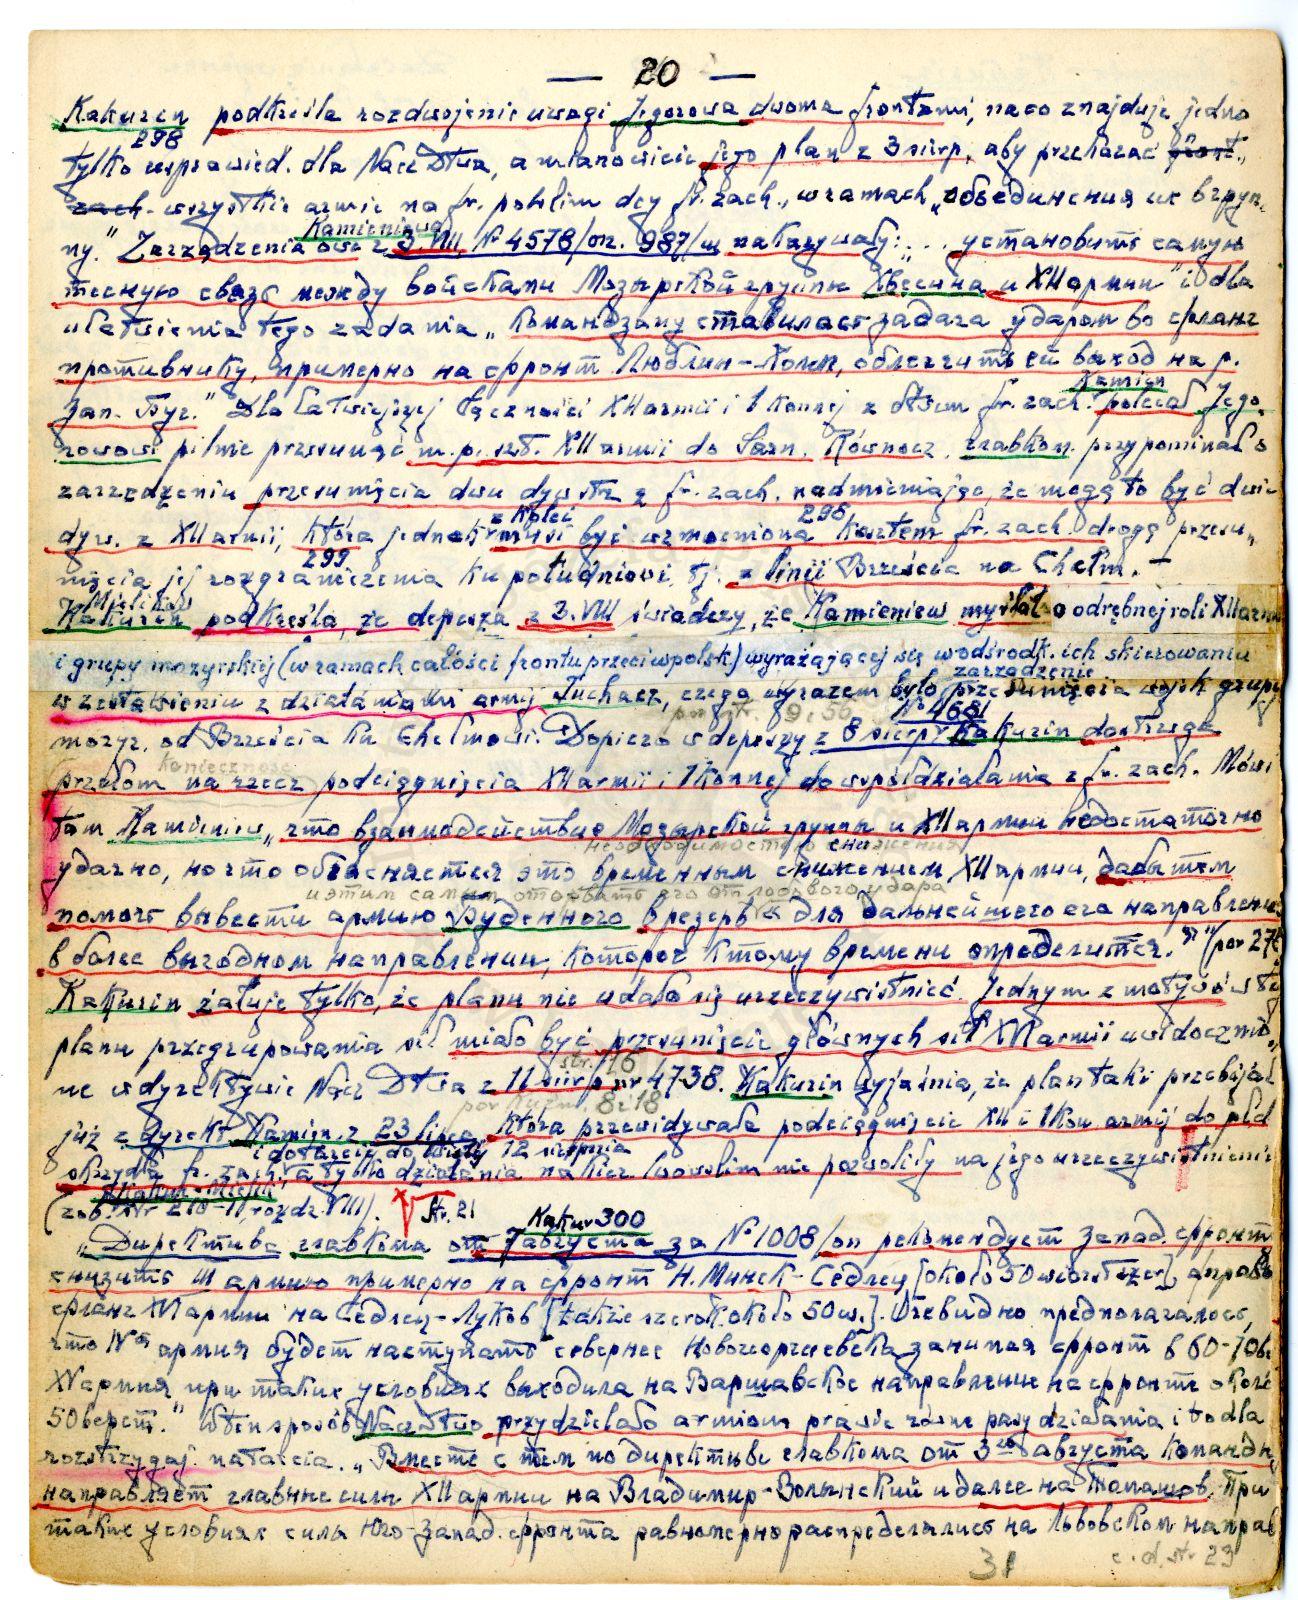 — 20 —
Kakurin podkreśla rozdwojenie uwagi Jegorowa dwoma frontami, na co znajduje jedno
298
tylko usprawied. dla Nacz Dtwa, a mianowicie jego plan z 3 sierp., aby przekazać front.
zach. wszystkie armie na fr. polskim dcy fr. zach., w ramach „объединения их в груп-
Kamieniewa
пу." Zarządzenia owe z 3.VIII № 4578/оп. 987/ш nakazywały: „... установить самую
тесную связь между войсками Мозырской группы Хвесина и XII армии" i dla
ułatwienia tego zadania „Командзапу ставилась задача ударом во фланг
противнику, примерно на фронт Люблин–Холм, облегчить ей выход на р.
Kamien
Зап. Буг." Dla łatwiejszej łączności XII armii i 1 Konnej z dtwem fr. zach. polecał Jego-
rowowi pilnie przesunąć m.p. szt. XII armii do Sarn. Równocz. gławkom przypominał o
zarządzeniu przesunięcia dwu dywiz z fr. zach. nadmieniając, że mogą to być dwie
z kolei 298
dyw. z XII armii, która jednak musi być wzmocniona kosztem fr. zach. drogą przesu-
299
nięcia jej rozgraniczenia ku południowi, tj. z linii Brześcia na Chełm. —
Mielikow
Kakurin podkreśla, że depesza z 3.VIII świadczy, że Kamieniew myślał o odrębnej roli XII armii
i grupy mozyrskiej (w ramach całości frontu przeciwpolsk.) wyrażającej się w odśrodk. ich skierowaniu
zarządzenie
w zestawieniu z działaniami armij Tuchacz, czego wyrazem było przesunięcia wojsk grupy
№ 4681
mozyr. od Brześcia ku Chełmowi. Dopiero w depeszy z 8 sierp. Kakurin dostrzega
konieczność
przełom na rzecz podciągnięcia XII armii i 1 Konnej do współdziałania z fr. zach. Mówi
tam Kamieniew, „что взаимодействие Мозырской группы и XII армии недостаточно
необходимостью снижения
удачно, но что объясняется это временным снижением XII армии, дабы тем
и этим самым оторвать его от лобового удара
помочь вывести армию Буденного в резерв для дальнейшего его направления
в более выгодном направлении, которое к тому времени определится." (por 27
Kakurin żałuje tylko, że planu nie udało się urzeczywistnić. Jednym z motywów tego
planu przegrupowania sił miało być przesunięcie głównych sił XVI armii uwidocznio-
str. 116
ne w dyrektywie Nacz Dtwa z 11 sierp nr 4738. Kakurin wyjaśnia, że plan taki przebijał
por Kuzm. 8 i 18
już z dyrekt Kamien. z 23 lipca, która przewidywała podciągnięcie XII i 1 Kon armij do płd
i dotarcie do Wisły 12 sierpnia
skrzydła fr. zach., a tylko działania na kier. lwowskim nie pozwoliły na jego urzeczywistnienie
Kakur-Mielik
(zob. str 210–11, rozdz. VIII). Str. 21
Kakur 300
„Директива главкома от 7 августа за № 1008/оп рекомендует Запад. фронт
снизить III армию примерно на фронт Н. Минск – Седлец [około 50 wiorst szer.], а прав.
фланг XVI армии на Седлец – Луков [także szerok. około 50 w.]. Очевидно предполагалось,
что IV ая армия будет наступать севернее Новогеоргиевска, занимая фронт в 60–70 в.
XV армия при таких условиях выходила на Варшавское направление на фронте около
50 верст." W ten sposób Nacz Dtwo przydzielało armiom prawie równe pasy działania i to dla
rozstrzygaj. natarcia. „Вместе с тем по директиве главкома от 3го августа командю.
направляет главные силы XII армии на Владимир-Волынский и далее на Томашов. При
таких условиях силы Юго-Запад. фронта равномерно распределялись на Львовском направ
31 c. d. str 23